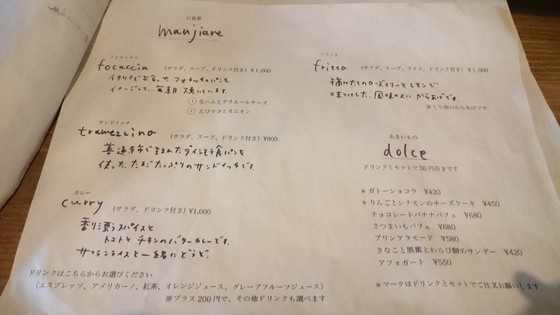 お食事
manjiare
フォカッチャ
focaccia (サラダ、スープ、ドリンク付き) ¥1,000
イタリアで出会ったフォカッチャパンを
イメージして、毎朝焼いています。
① 生ハムとグリエールチーズ
② えびマヨとオニオン
サンドイッチ
tramezzino (サラダ、スープ、ドリンク付き) ¥900
使った、たまごたっぷりのサンドイッチです。
カレー
curry (サラダ、ドリンク付き) ¥1,000
香り漂うスパイスと
トマトとチキンのバターカレーです。
サフランライスと一緒にどうぞ。
ドリンクはこちらからお選びください
(エスプレッソ、アメリカーノ、紅茶、オレンジジュース、グレープフルーツジュース)
※プラス200円で、その他ドリンクも選べます
fritto (サラダ、スープ、ライス、ドリンク付き) ¥1,000
摘みたてのローズマリーとレモンで
風味のよいからあげです。
※とり肉のからあげです
あまいもの
dolce
ドリンクとセットで50円引きです
※ ガトーショコラ ¥420
※ りんごとシナモンのチーズケーキ ¥450
チョコレートバナナパフェ ¥680
さつまいもパフェ ¥680
プリンアラモード ¥580
きなこと黒蜜とわらび餅のサンデー ¥420
アフォガート ¥550
※マークはドリンクとセットでご注文お願いします